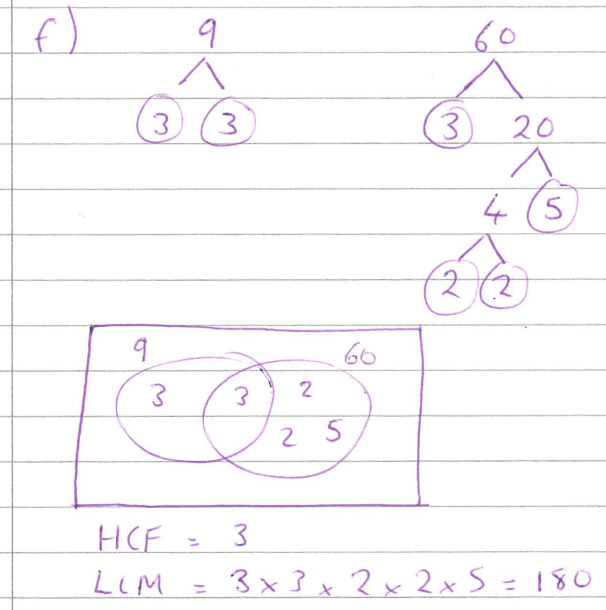 f) 9 60
3 3 3 20
4 5
2 2
9 60
3 3 2
2 5
HCF = 3
LCM = 3 × 3 × 2 × 2 × 5 = 180